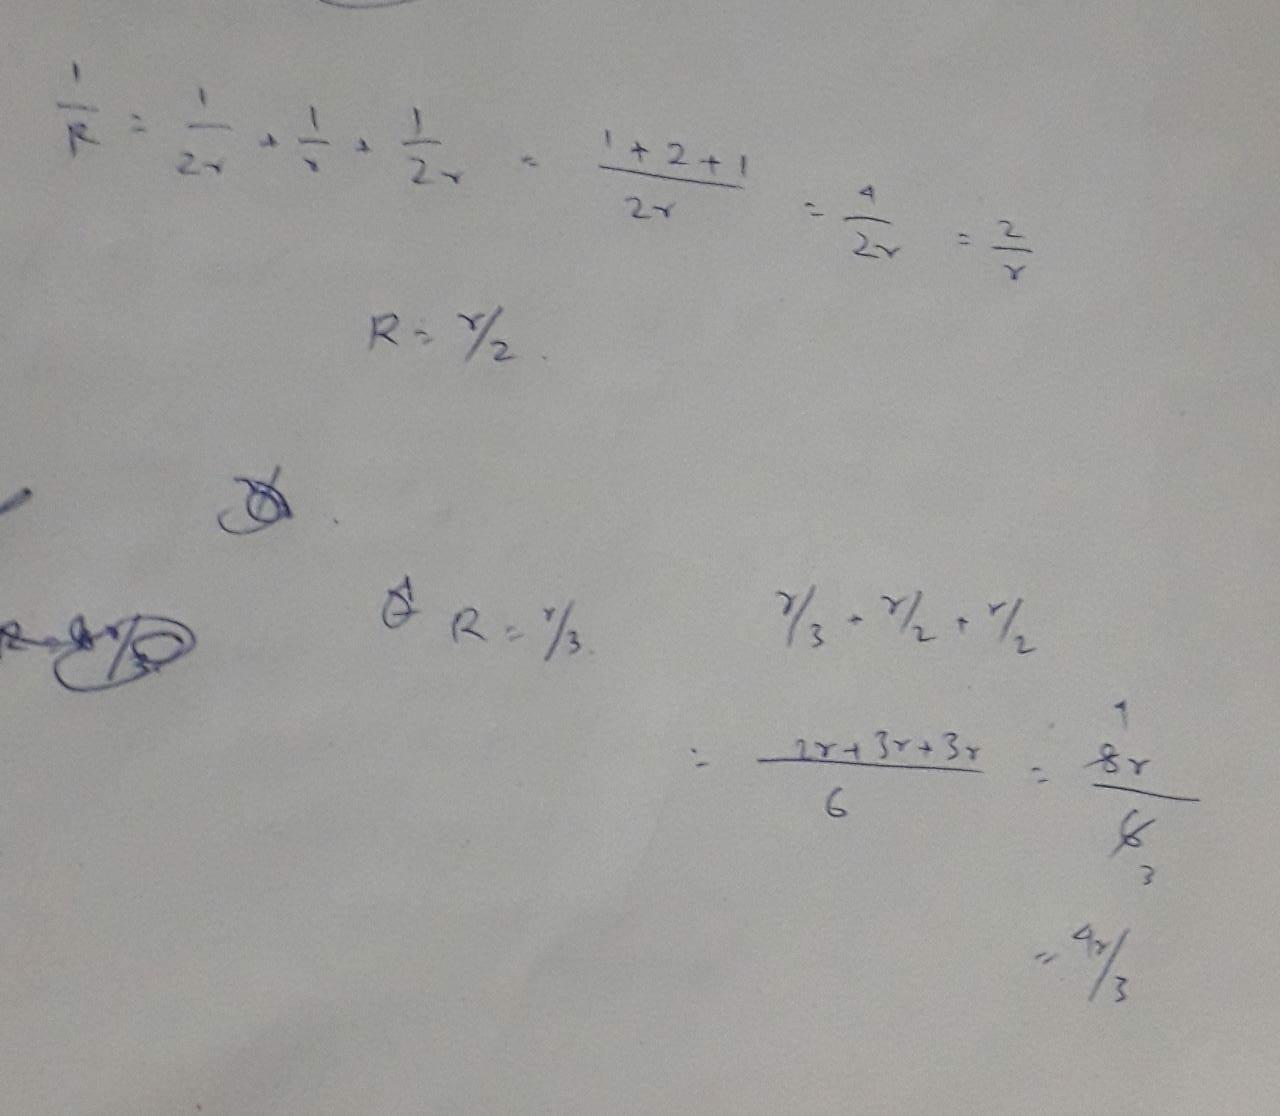 1/R = 1/2r + 1/r + 1/2r = (1+2+1)/2r = 4/2r = 2/r
R = r/2.
R = r/3. r/3 + r/2 + r/2
= (2r+3r+3r)/6 = 4 8r/6 3
= 4r/3